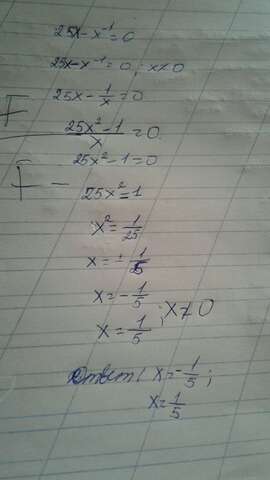 25x-x⁻¹=0
25x-x⁻¹=0; x≠0
25x-1/x=0
(25x²-1)/x=0.
25x²-1=0
25x²=1
x²=1/25
x=±1/5
x=-1/5
x=1/5; x≠0
Ответ: x=-1/5;
x=1/5